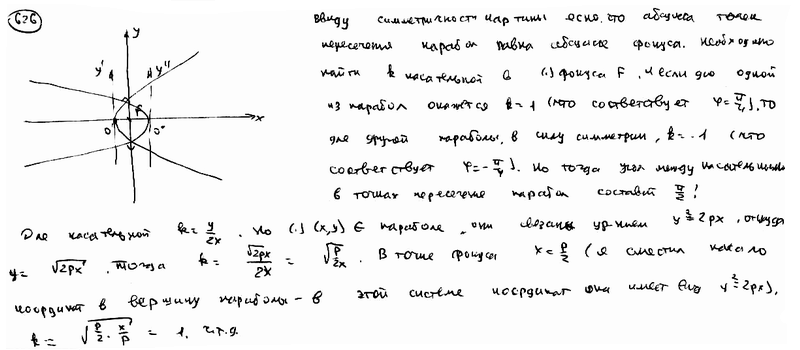 626
y
y' y''
F
x
O' O''
Ввиду симметричности картины ясно, что абсцисса точек
пересечения парабол равна абсциссе фокуса. Необходимо
найти k касательной в (.) фокуса F, и если для одной
из парабол окажется k = 1 (что соответствует φ = π/4), то
для другой параболы, в силу симметрии, k = -1 (что
соответствует φ = -π/4). Но тогда угол между касательными
в точках пересечения парабол составит π/2!
Для касательной k = y/2x. Но (.) (x,y) ∈ параболе, они связаны ур-нием y² = 2px, откуда
y = √2px, тогда k = √2px/2x = √p/2x. В точке фокуса x = p/2 (я сместил начало
координат в вершину параболы - в этой системе координат она имеет вид y² = 2px),
k = √(p/2 · x/p) = 1. ч.т.д.